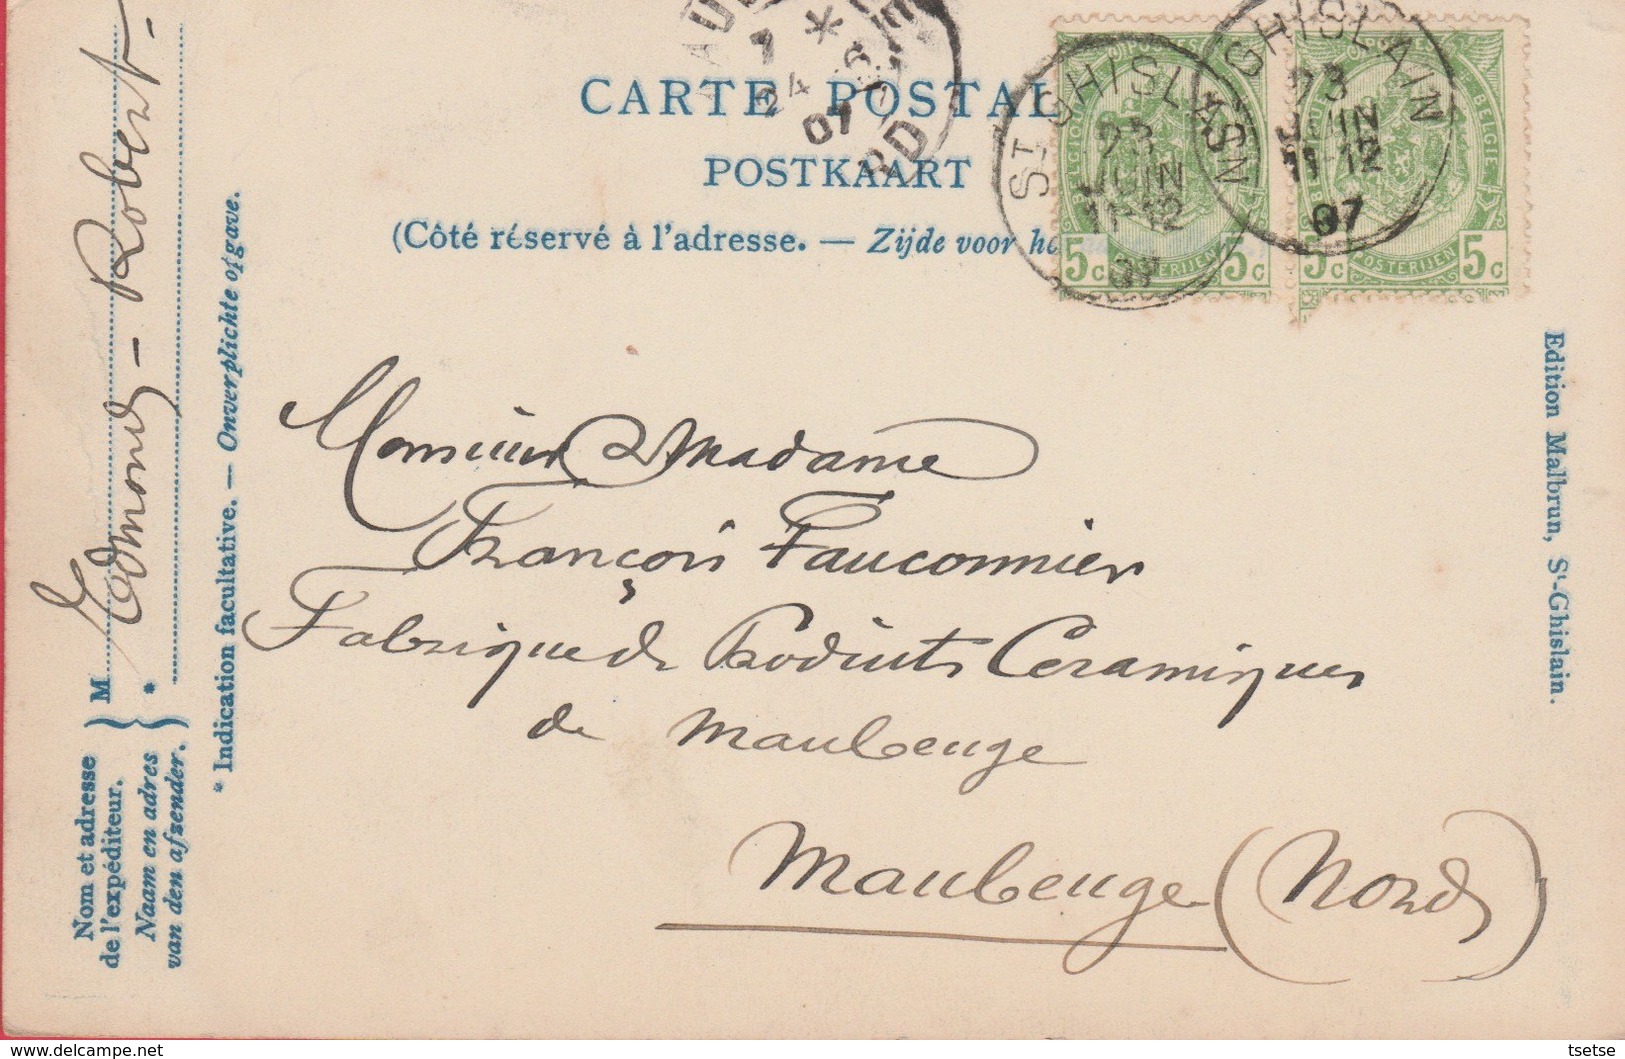 CARTE POSTAL
POSTKAART
(Côté réservé à l'adresse. — Zijde voor
ST GHISLAIN
23
JUIN
11-12
07
ST GHISLAIN
23
JUIN
11-12
07
24
07
5c POSTERIJEN 5c
5c POSTERIJEN 5c
Monsieur & Madame
François Fauconnier
Fabrique de Produits Ceramiques
de Maubeuge
Maubeuge (Nord)
Edmond - Robert.
M
*
Nom et adresse
de l'expéditeur.
Naam en adres
van den afzender.
* Indication facultative. — Onverplichte opgave.
Edition Malbrun, St-Ghislain.
tsetse